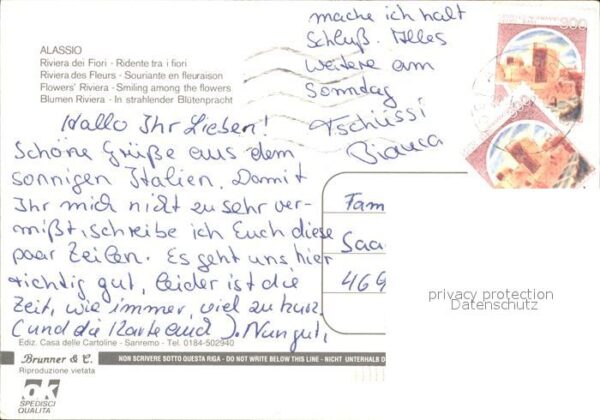 ALASSIO
Riviera dei Fiori - Ridente tra i fiori
Riviera des Fleurs - Souriante en fleuraison
Flowers' Riviera - Smiling among the flowers
Blumen Riviera - In strahlender Blütenpracht
Hallo Ihr Lieben!
Schöne Grüße aus dem
sonnigen Italien. Damit
Ihr mich nicht zu sehr ver-
mißt, schreibe ich Euch diese
paar Zeilen. Es geht uns hier
richtig gut, leider ist die
Zeit, wie immer, viel zu kurz
(und die Karte auch). Nun gut,
mache ich halt
Schluß. Alles
weitere am
Sonntag
Tschüssi
Bianca
300
Fam
Saa
469
privacy protection
Datenschutz
Ediz. Casa delle Cartoline - Sanremo - Tel. 0184-502940
Brunner & C.
NON SCRIVERE SOTTO QUESTA RIGA - DO NOT WRITE BELOW THIS LINE - NICHT UNTERHALB D
Riproduzione vietata
ok
SPEDISCI
QUALITA